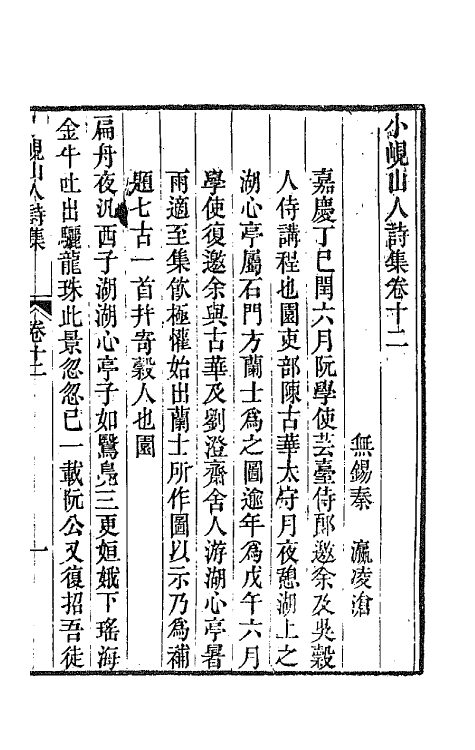 小峴山人詩集卷十二
無錫秦 瀛凌滄
嘉慶丁巳閏六月阮學使芸臺侍郎邀余及吳穀
人侍講程也園吏部陳古華太守月夜憩湖上之
湖心亭屬石門方蘭士爲之圖逾年爲戊午六月
學使復邀余與古華及劉澄齋舍人游湖心亭暑
雨適至集飲極懽始出蘭士所作圖以示乃爲補
題七古一首幷寄穀人也園
扁舟夜汎西子湖湖心亭子如鷖鳧三更姮娥下瑤海
金牛吐出驪龍珠此景忽忽已一載阮公又復招吾徒
峴山人詩集 卷十二 一